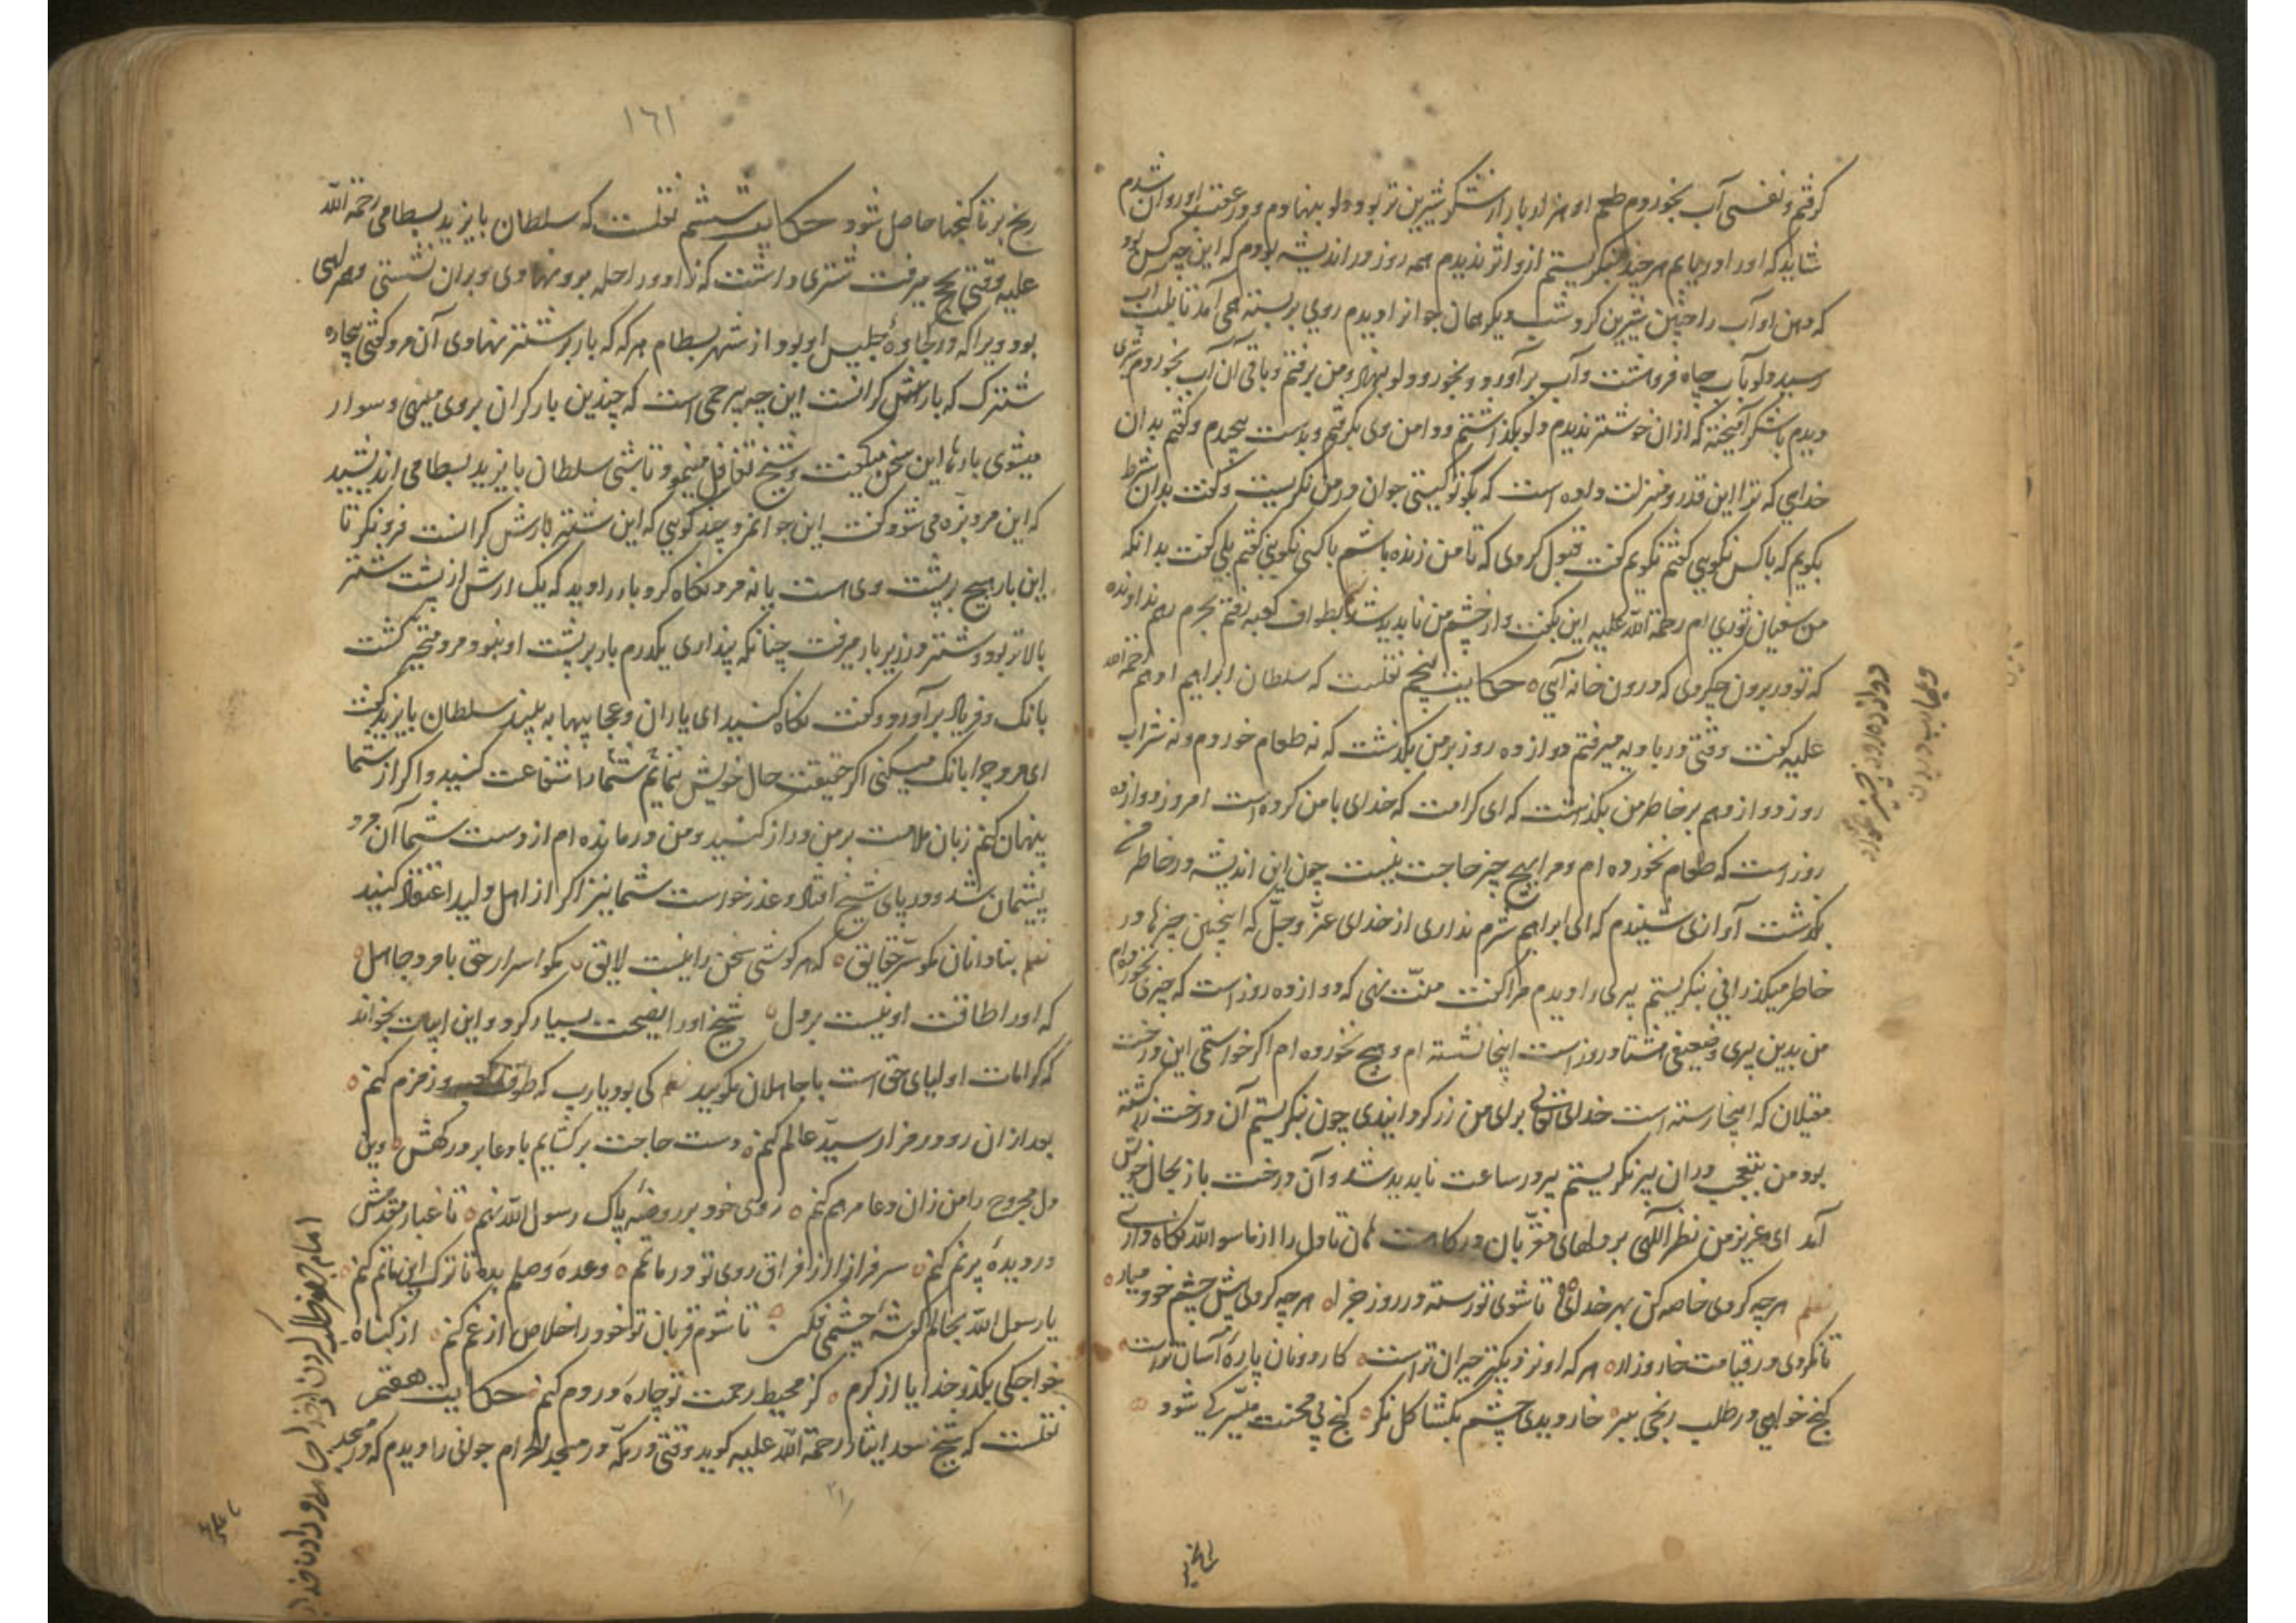 گرفتم و نفسی آب بخوردم طعم او هزار بار از شکر شیرین تر بود دلو بنهادم و در عقب او روان شدم
شاید که او را دریابم هرچند بنگریستم ازو اثر ندیدم همه روز در اندیشه بودم که این چه کس بود
که دهن او آب را چنین شیرین کرد شب دیگر همان جوانرا دیدم روی بربسته همی آمد تا بطلب آب
رسید دلو بآب چاه فروهشت و آب برآورد و بخورد و دلو بنهاد و من برفتم و باقی آن آب بخوردم شربتی
دیدم با شکر آمیخته که از ان خوشتر ندیدم دلو بگذاشتم و دامن وی بگرفتم و بدست پیچیدم و گفتم بدان
خدای که ترا این قدر و منزلت داده است که بگو تو کیستی جوان در من نگریست و گفت بدان شرط
بگویم که با کس نگویی گفتم نگویم گفت قبول کردی که تا من زنده باشم با کسی نگویی گفتم بلی گفت بدانکه
من سفیان ثوری ام رحمة الله علیه این بگفت و از چشم من ناپدید شد بطواف کعبه رفتم بحرم رهم ندادند
که تو در برون چه کردی که درون خانه آیی حکایت پنجم نقلست که سلطان ابراهیم ادهم رحمة الله
علیه گفت وقتی در بادیه میرفتم دوازده روز بر من بگذشت که نه طعام خوردم و نه شراب
روز دوازدهم بر خاطر من بگذشت که ای کرامت که خدای با من کرده است امروز دوازده
روز است که طعام نخورده ام و مرا هیچ چیز حاجت نیست چون این اندیشه در خاطر
بگذشت آوازی شنیدم که ای ابراهیم شرم نداری از خدای عز و جل که اینچنین چیزها در
خاطر میگذرانی بنگریستم پیری را دیدم مرا گفت منت نهی که دوازده روز است که چیزی نخورده ام
من بدین پیری و ضعیفی هشتاد روز است اینجا نشسته ام و هیچ نخورده ام اگر خواستمی این درخت
مغیلان که اینجا رسته است خدای تعالی برای من زر گردانیدی چون بنگریستم آن درخت زر گشته
بود من بتعجب در ان پیر نگریستم پیر در ساعت ناپدید شد و آن درخت باز بحال خویش
آمد ای عزیز من نظر الهی بر دلهای مقربان درگاست هان تا دل را از ما سوا الله نگاه داری
نظم هرچه کردی خاصه کن بهر خدای تا شوی تو رسته در روز جزا هرچه کردی پیش چشم خود میار
تا نگردی در قیامت خار و زار هر که او نزدیکتر حیران تر است کار دونان پاره آسان تر است
گنج خواهی در طلب رنجی ببر خار دیدی چشم بگشا گل نگر گنج بی محنت میسر کی شود
۱٦۱
رنج بر تا گنجها حاصل شود حکایت ششم نقلست که سلطان بایزید بسطامی رحمة الله
علیه وقتی بحج میرفت شتری داشت که زاد و راحله برو نهادی و بران نشستی و مردی
بود ویرا که در کجاوه جلیس او بود از شهر بسطام هر که که بار بر شتر نهادی آن مرد گفتی بیچاره
شترک که بارش گرانست این چه بیرحمی است که چندین بار گران بروی مینهی و سوار
میشوی بارها این سخن میگفت و شیخ تغافل مینمود تا شبی سلطان بایزید بسطامی اندیشید
که این مرد بزه می شود گفت این جوانمرد چند گویی که این شتر بارش گرانست فرو نگر تا
این بار هیچ بر پشت وی است یا نه مرد نگاه کرد بار را دید که یک ارش از پشت شتر
بالاتر بود و شتر در زیر بار میرفت چنانکه پنداری یکدرم بار بر پشت او نبود مرد متحیر گشت
بانک و فریاد برآورد و گفت نگاه کنید ای یاران و عجایبها به بینید سلطان بایزید گفت
ای مرد چرا بانک میکنی اگر حقیقت حال خویش نمایم شما را شفاعت کنید و اگر از شما
پنهان کنم زبان ملامت بر من دراز کنید و من درمانده ام از دست شما آن مرد
پشیمان شد و در پای شیخ افتاد و عذر خواست شما نیز اگر از اهل ولید اعتقاد کنید
نظم بنادانان مگو سر حقایق که هر گوشی سخن را نیست لایق مگو اسرار حق با مرد جاهل
که او را طاقت او نیست بر دل شیخ او را نصیحت بسیار کرد و این ابیات بخواند
که کرامات اولیای حق است با جاهلان مگویید نظم کی بود یارب که طوف کعبه و زمزم کنم
بعد از ان رو در مزار سید عالم کنم دست حاجت برگشایم با دعا بر درگهش وین
دل مجروح را من زان دعا مرهم کنم روی خود بر روضه پاک رسول الله نهم تا غبار مقدمش
در دیده پر نم کنم سرفرازا از فراق روی تو در ماتمم وعده وصلم بده تا ترک این ماتم کنم
یا رسول الله بحالم گوشه چشمی فکن تا شوم قربان تو خود را خلاص از غم کنم از گناه
خواجکی بگذر خدایا از کرم کز محیط رحمت تو چاره دردم کنم حکایت هفتم
نقلست که شیخ سعد رحمة الله علیه گوید وقتی در مکه در مسجد الحرام جوانی را دیدم که در مسجد